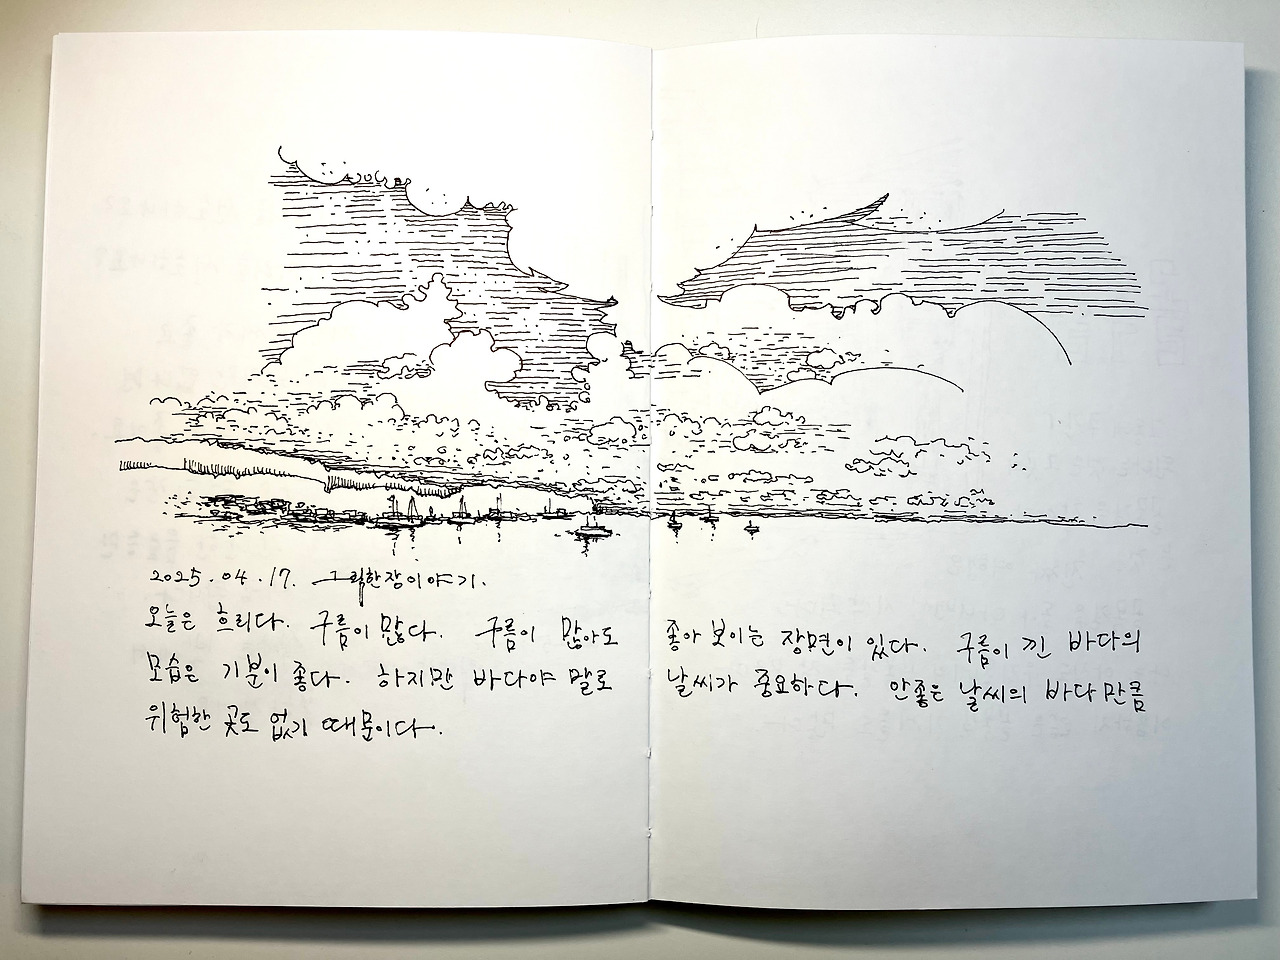 2025.04.17. 그림한장이야기.
오늘은 흐리다. 구름이 많다. 구름이 많아도 좋아 보이는 장면이 있다. 구름이 낀 바다의
모습은 기분이 좋다. 하지만 바다야 말로 날씨가 중요하다. 안좋은 날씨의 바다만큼
위험한 곳도 없기 때문이다.